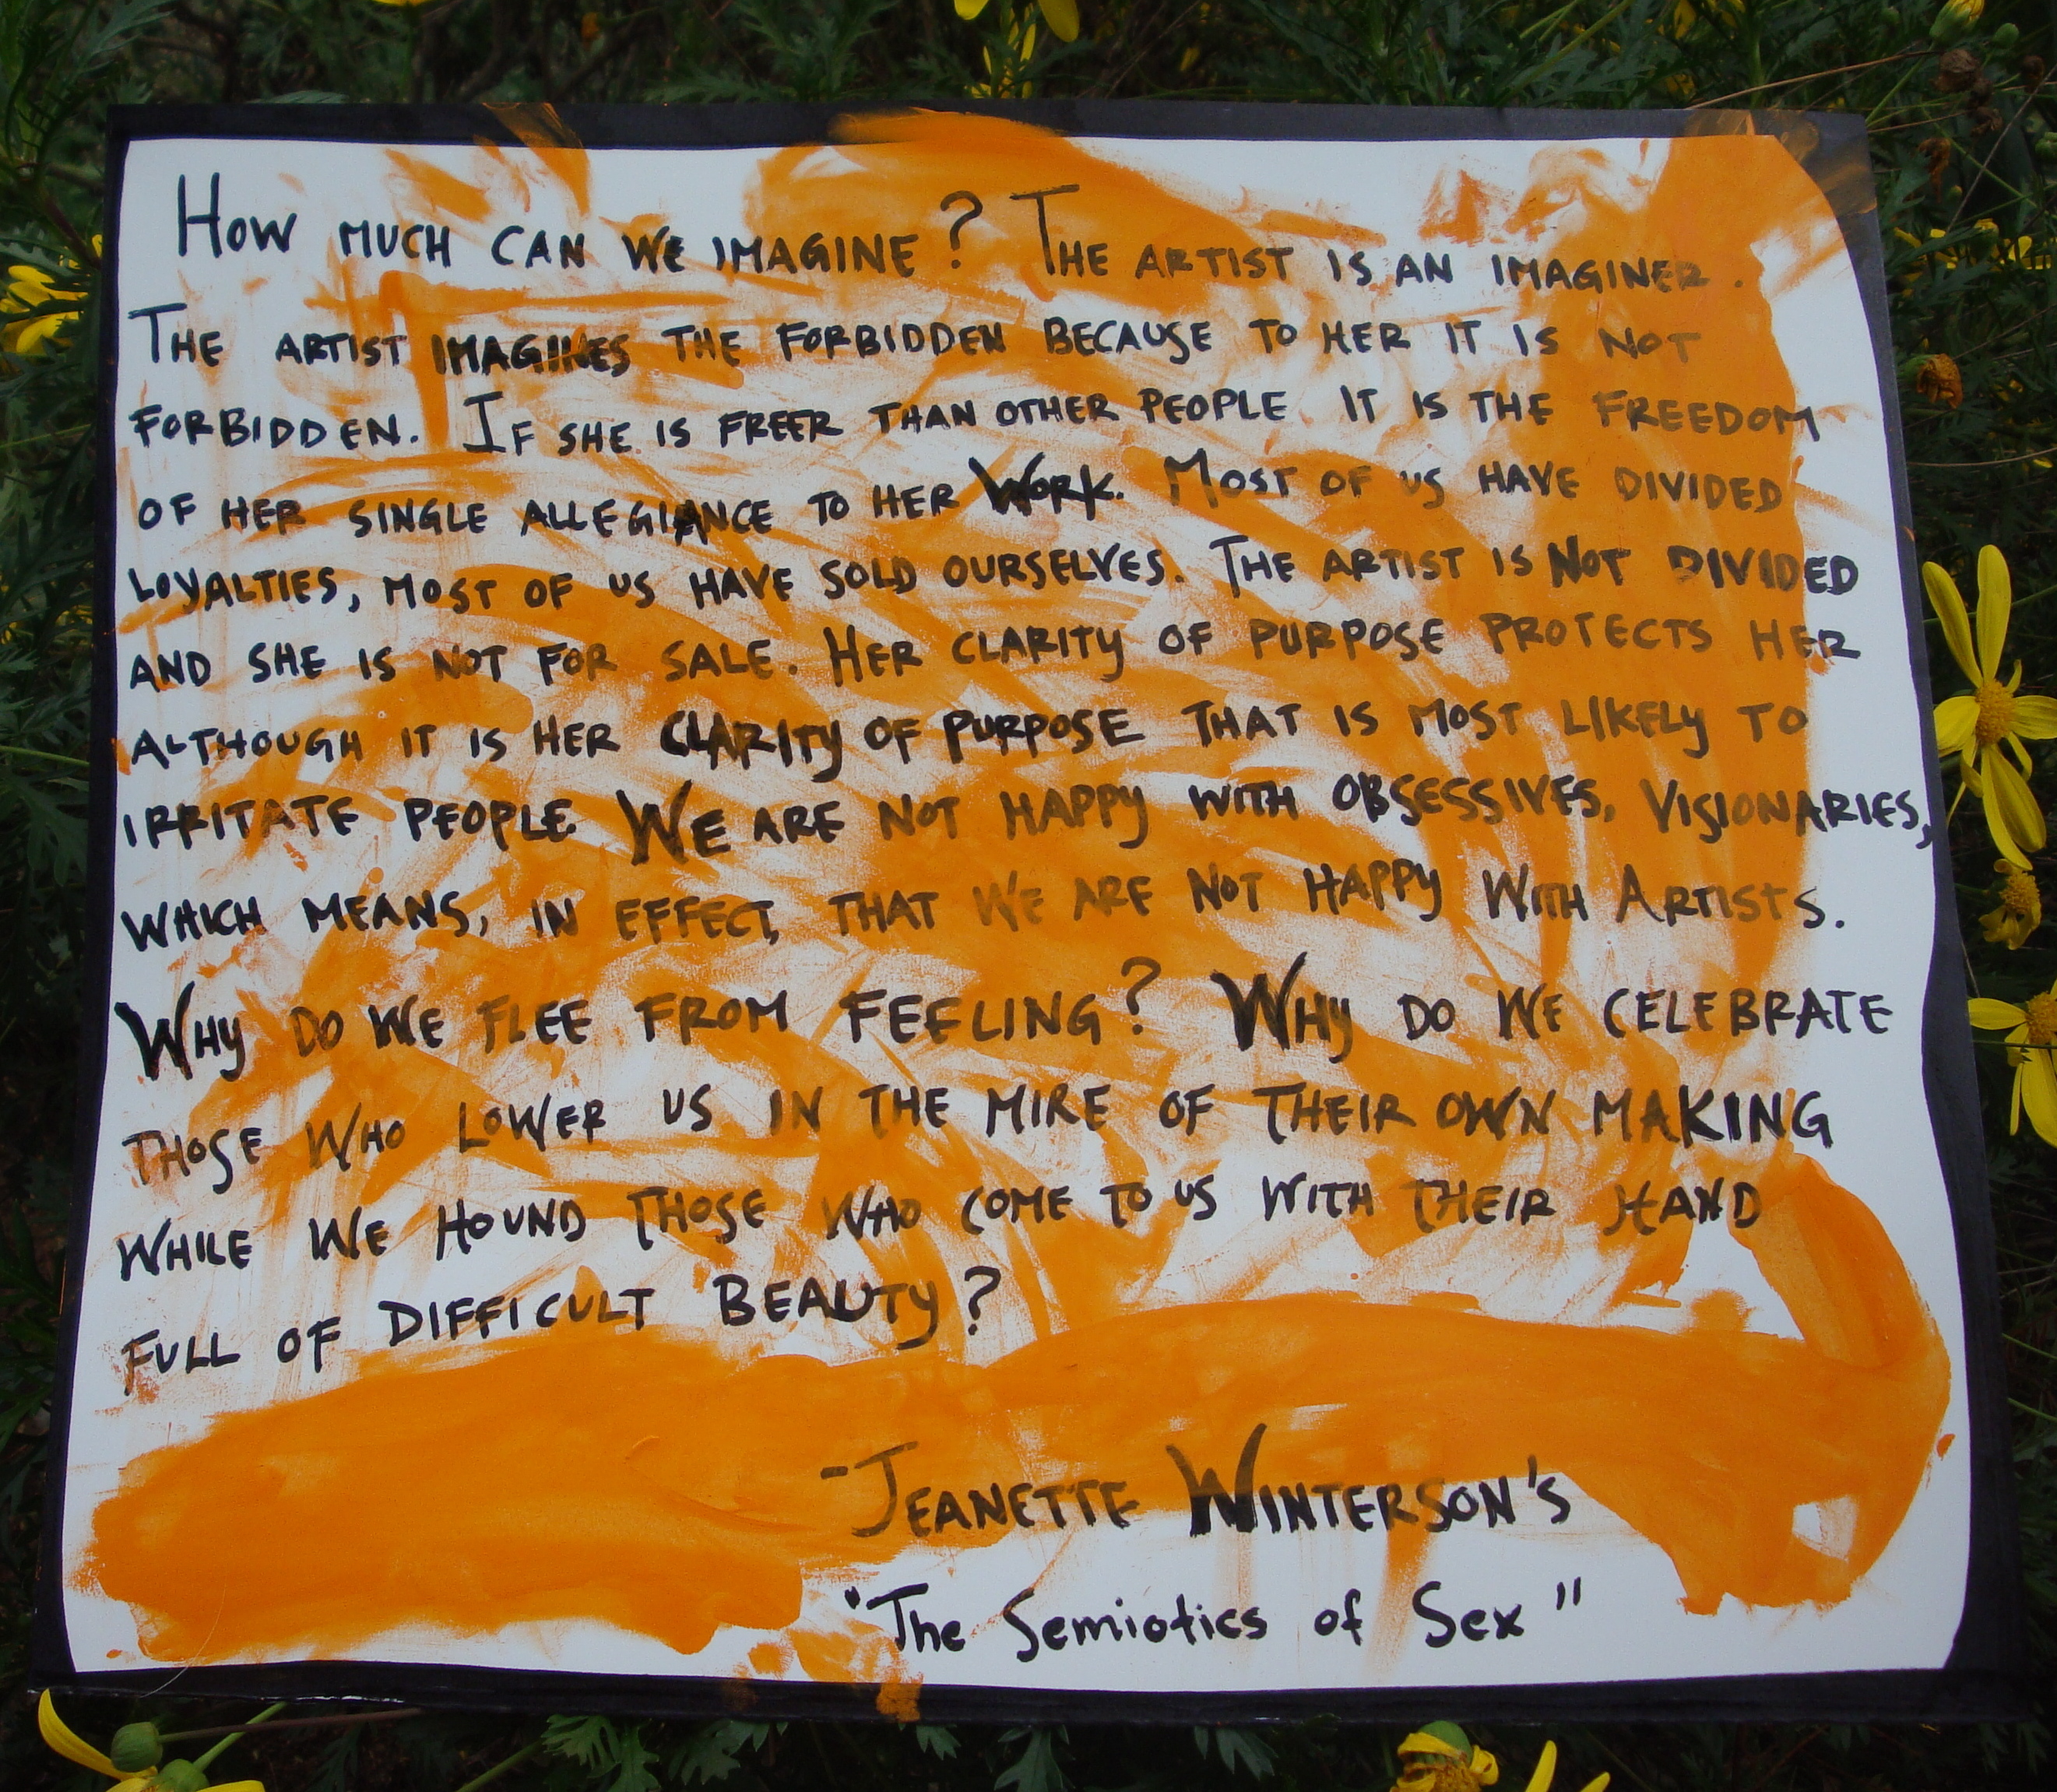 How much can we imagine? The artist is an imaginer.
The artist imagines the forbidden because to her it is not
forbidden. If she is freer than other people it is the freedom
of her single allegiance to her Work. Most of us have divided
loyalties, most of us have sold ourselves. The artist is not divided
and she is not for sale. Her clarity of purpose protects her
although it is her clarity of purpose that is most likely to
irritate people. We are not happy with obsessives, visionaries,
which means, in effect, that we are not happy with Artists.
Why do we flee from feeling? Why do we celebrate
those who lower us in the mire of their own making
while we hound those who come to us with their hand
full of difficult beauty?
-Jeanette Winterson's
"The Semiotics of Sex"